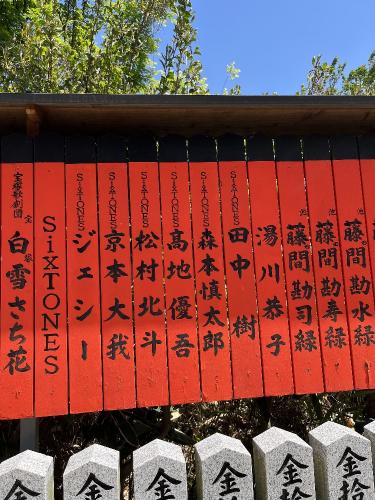 宝塚歌劇団
白雪さち花
SixTONES
SixTONES
ジェシー
SixTONES
京本大我
SixTONES
松村北斗
SixTONES
髙地優吾
SixTONES
森本慎太郎
SixTONES
田中樹
湯川恭子
池
藤間勘司緑
池
藤間勘寿緑
池
藤間勘水緑
金
金
金
金
金
金拾
金